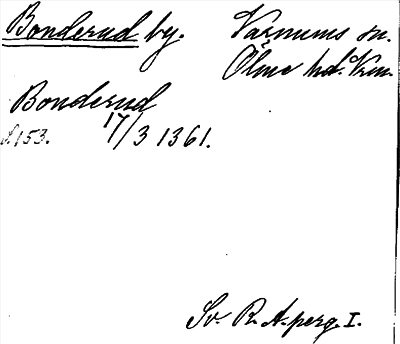 Bonderud by. Varnums sn.
Ölme hd. Vrm.
Bonderud
s. 153. 17/3 1361.
Sv. R. A. perg. I.